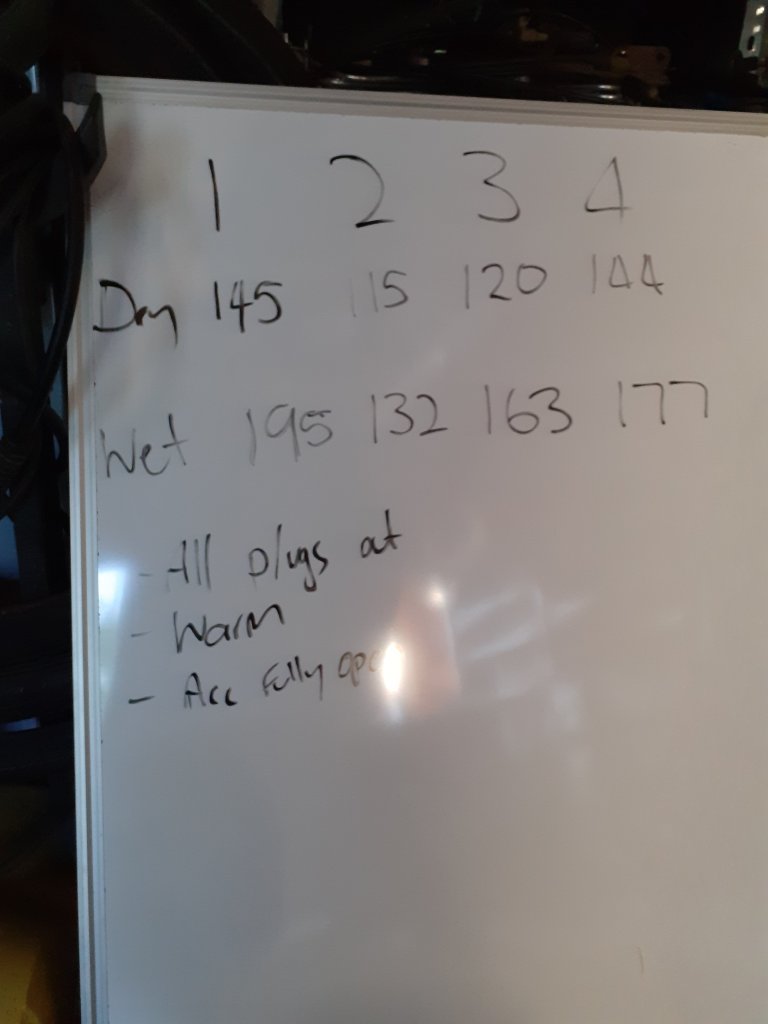 1 2 3 4
Dry 145 115 120 144
Wet 195 132 163 177
- All plugs out
- Warm
- Acc fully open